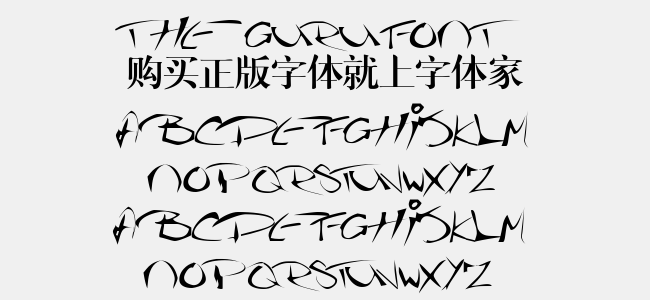 THE GURU FONT
购买正版字体就上字体家
ABCDEFGHIJKLM
NOPQRSTUVWXYZ
ABCDEFGHIJKLM
NOPQRSTUVWXYZ